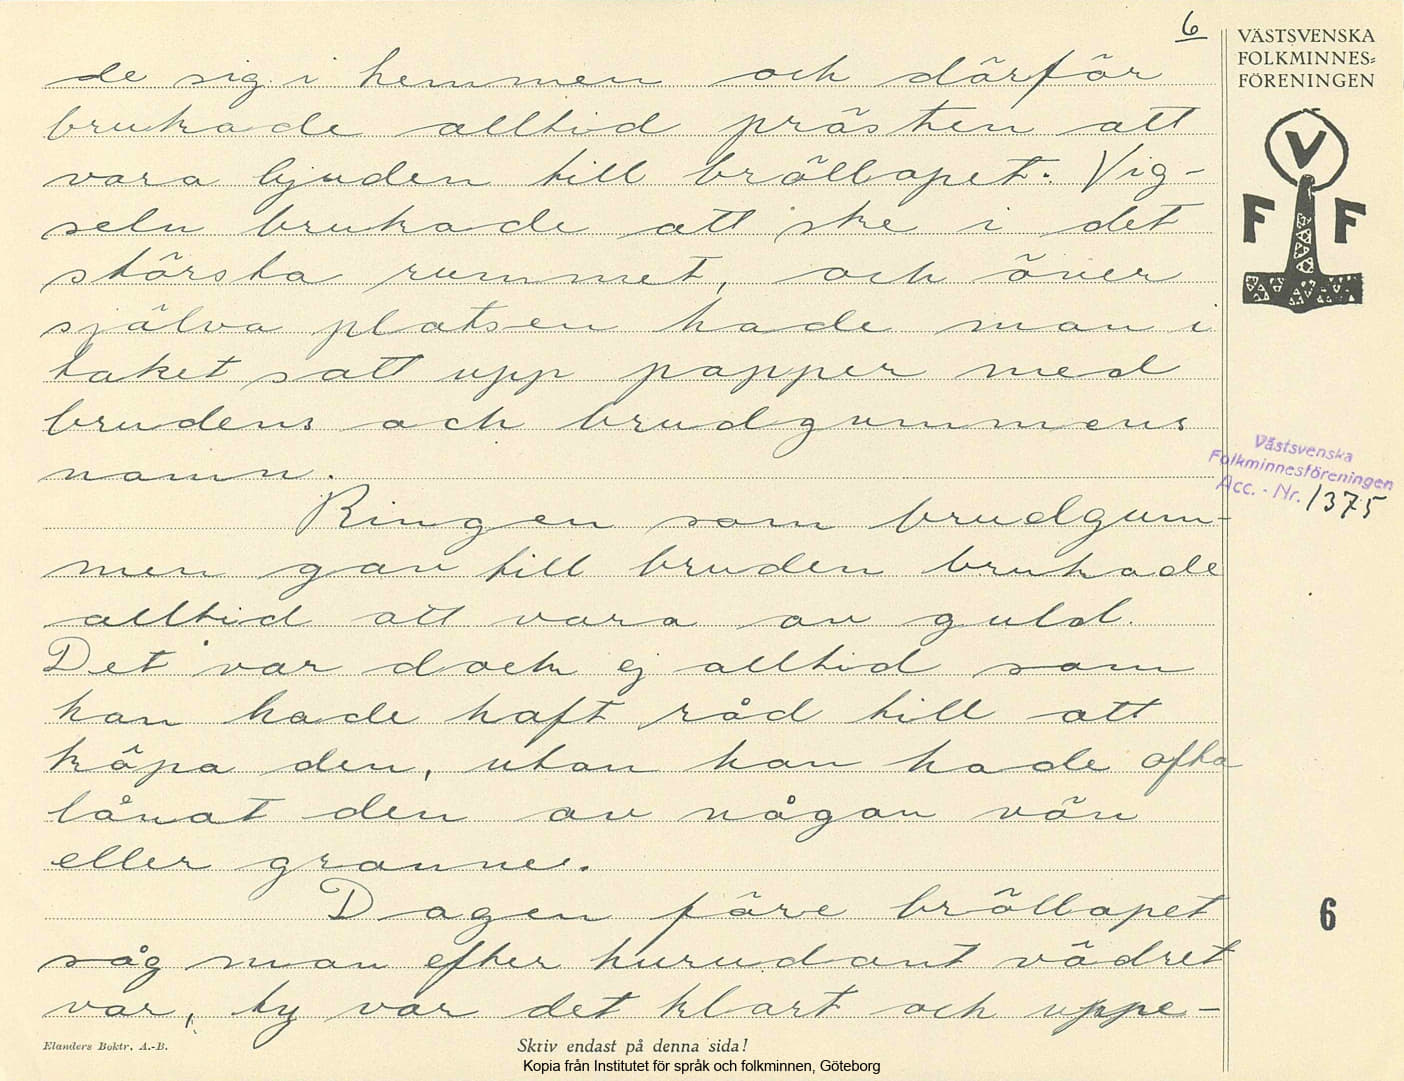 6
VÄSTSVENSKA
FOLKMINNES=
FÖRENINGEN
V
F F
de sig i hemmen och därför
brukade alltid prästen att
vara bjuden till bröllopet. Vig-
seln brukade att ske i det
största rummet, och över
själva platsen hade man i
taket satt upp papper med
brudens och brudgummens
namn.
Västsvenska
Folkminnesföreningen
Acc. - Nr. 1375
Ringen som brudgum-
men gav till bruden brukade
alltid att vara av guld.
Det var dock ej alltid som
han hade haft råd till att
köpa den, utan han hade ofta
lånat den av någon vän
eller granne.
Dagen före bröllopet
såg man efter hurudant vädret
var, ty var det klart och uppe-
6
Elanders Boktr. A.-B.
Skriv endast på denna sida!
Kopia från Institutet för språk och folkminnen, Göteborg